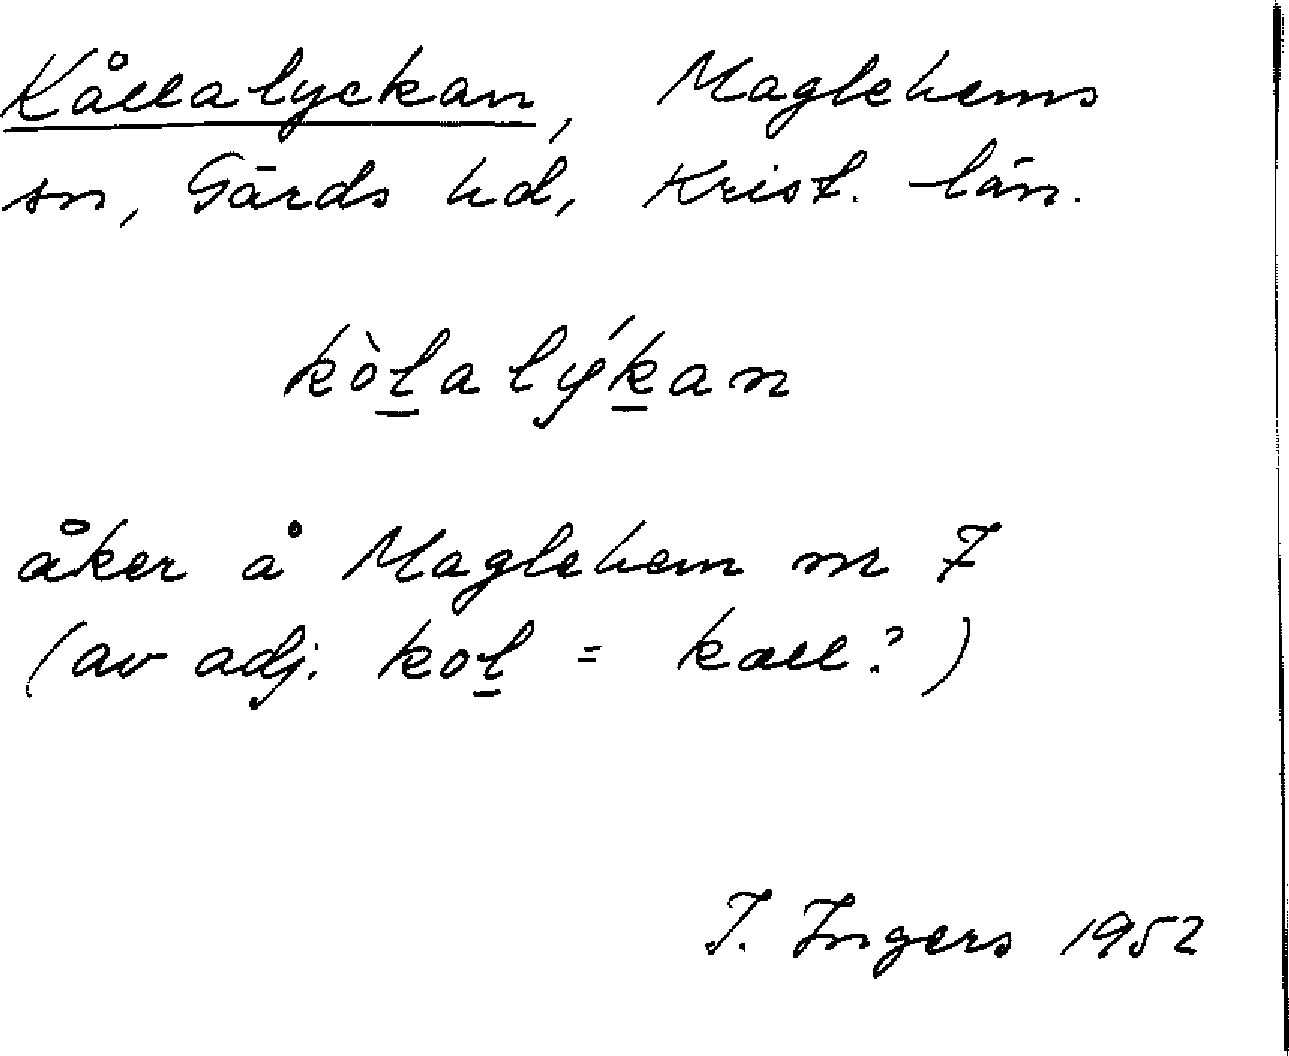 Kållalyckan, Maglehems
sn, Gärds hd, Krist. län.
kòl̲alýk̲an
åker å Maglehem nr 7
(av adj. kol̲ = kall?)
I. Ingers 1952